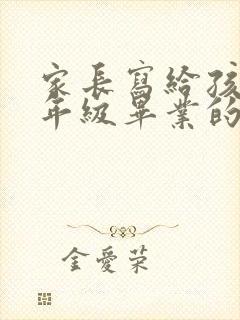 家長寫給孩
年級畢業的
金愛荣